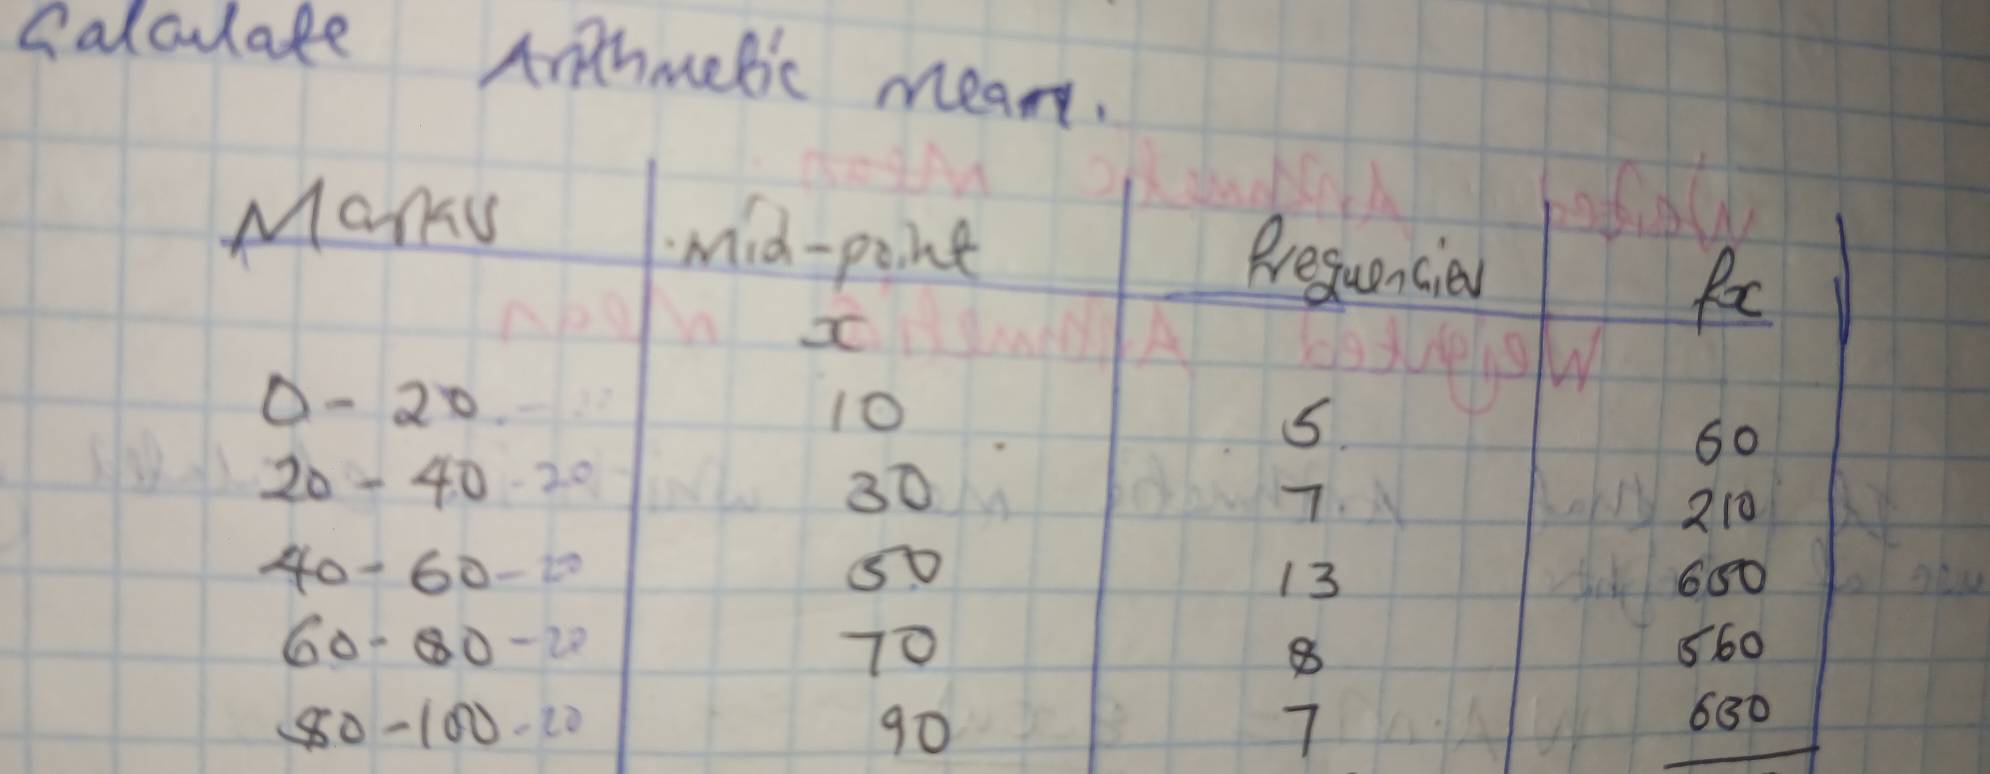 Calculate Arithmetic Mean.
Marks Mid-point frequencies fx
x
0 - 20 10 5 50
20 - 40 - 20 30 7 210
40 - 60 - 20 50 13 650
60 - 80 - 20 70 8 560
80 - 100 - 20 90 7 630